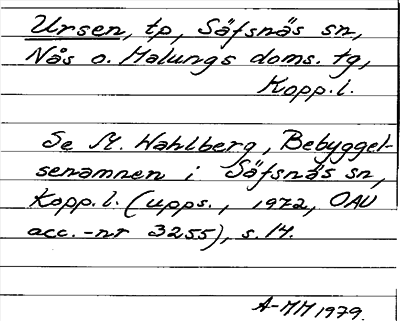 Ursen, tp, Säfsnäs sn,
Nås o. Malungs doms. tg,
Kopp.l.
Se M. Wahlberg, Bebyggel-
senamnen i Säfsnäs sn,
Kopp.l. (upps., 1972, OAU
acc.-nr 3255), s.14.
A-MM 1979.